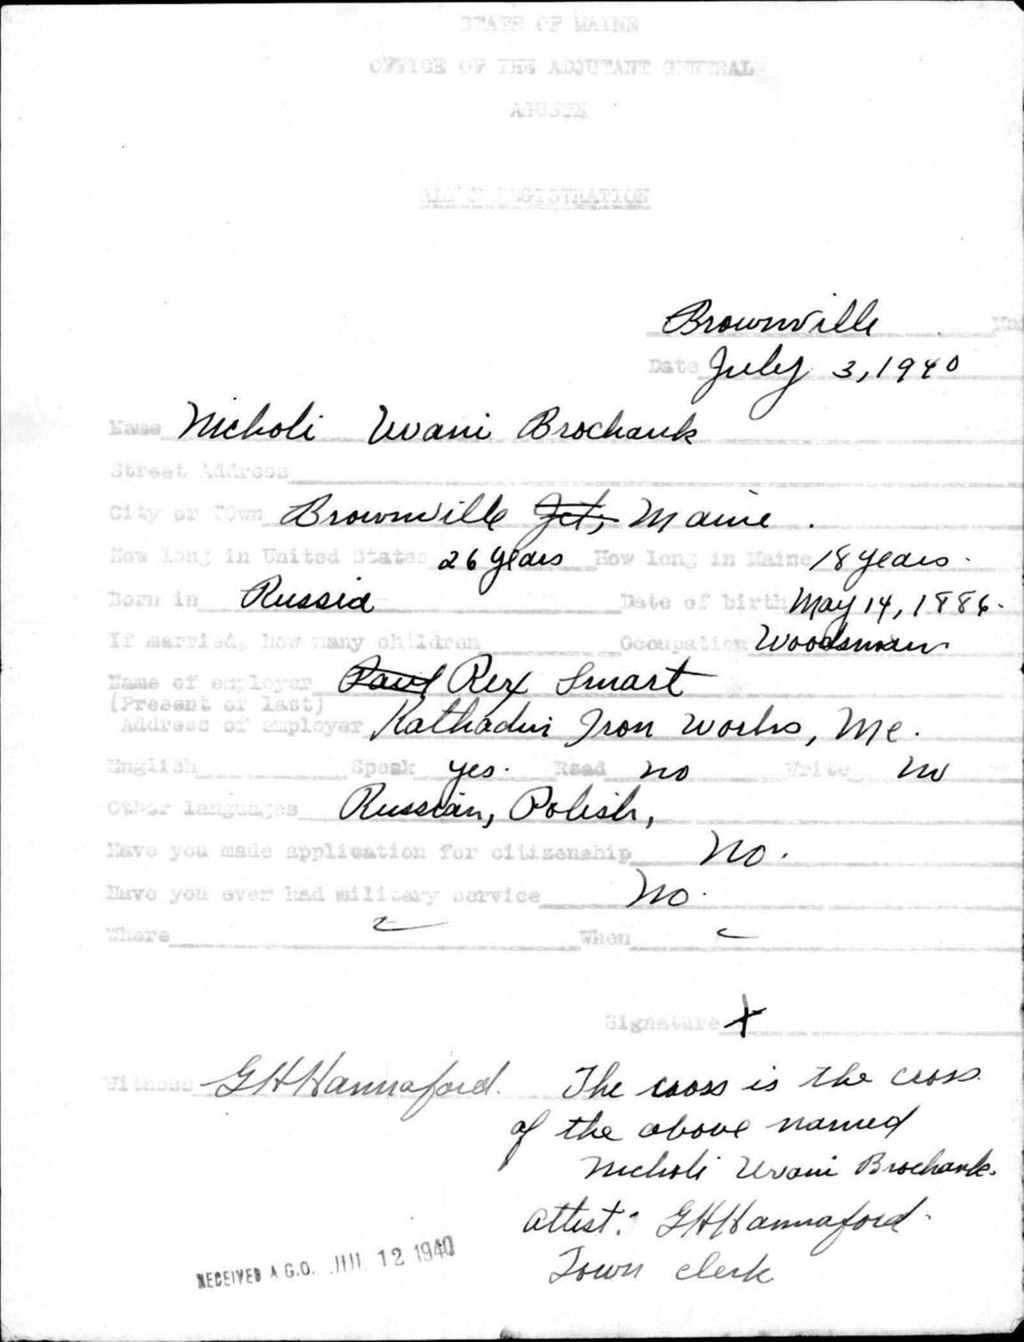 STATE OF MAINE
OFFICE OF THE ADJUTANT GENERAL
AUGUSTA
ALIEN REGISTRATION
Brownville
Date July 3, 1940
Name Nicholi Uvani Brochank
Street Address
City or Town Brownville Jct, Maine.
How long in United States 26 years How long in Maine 18 years.
Born in Russia Date of birth May 14, 1886.
If married, how many children Occupation Woodsman
Name of employer Paul Rex Smart
(Present or last)
Address of employer Kathadin Iron Works, Me.
English Speak yes. Read no Write no
Other languages Russian, Polish,
Have you made application for citizenship No.
Have you ever had military service No.
Where When
Signature X
Witness G H Hannaford.
The cross is the cross
of the above named
Nicholi Uvani Brochank.
attest: G H Hannaford.
Town clerk
RECEIVED A.G.O. JUL 12 1940